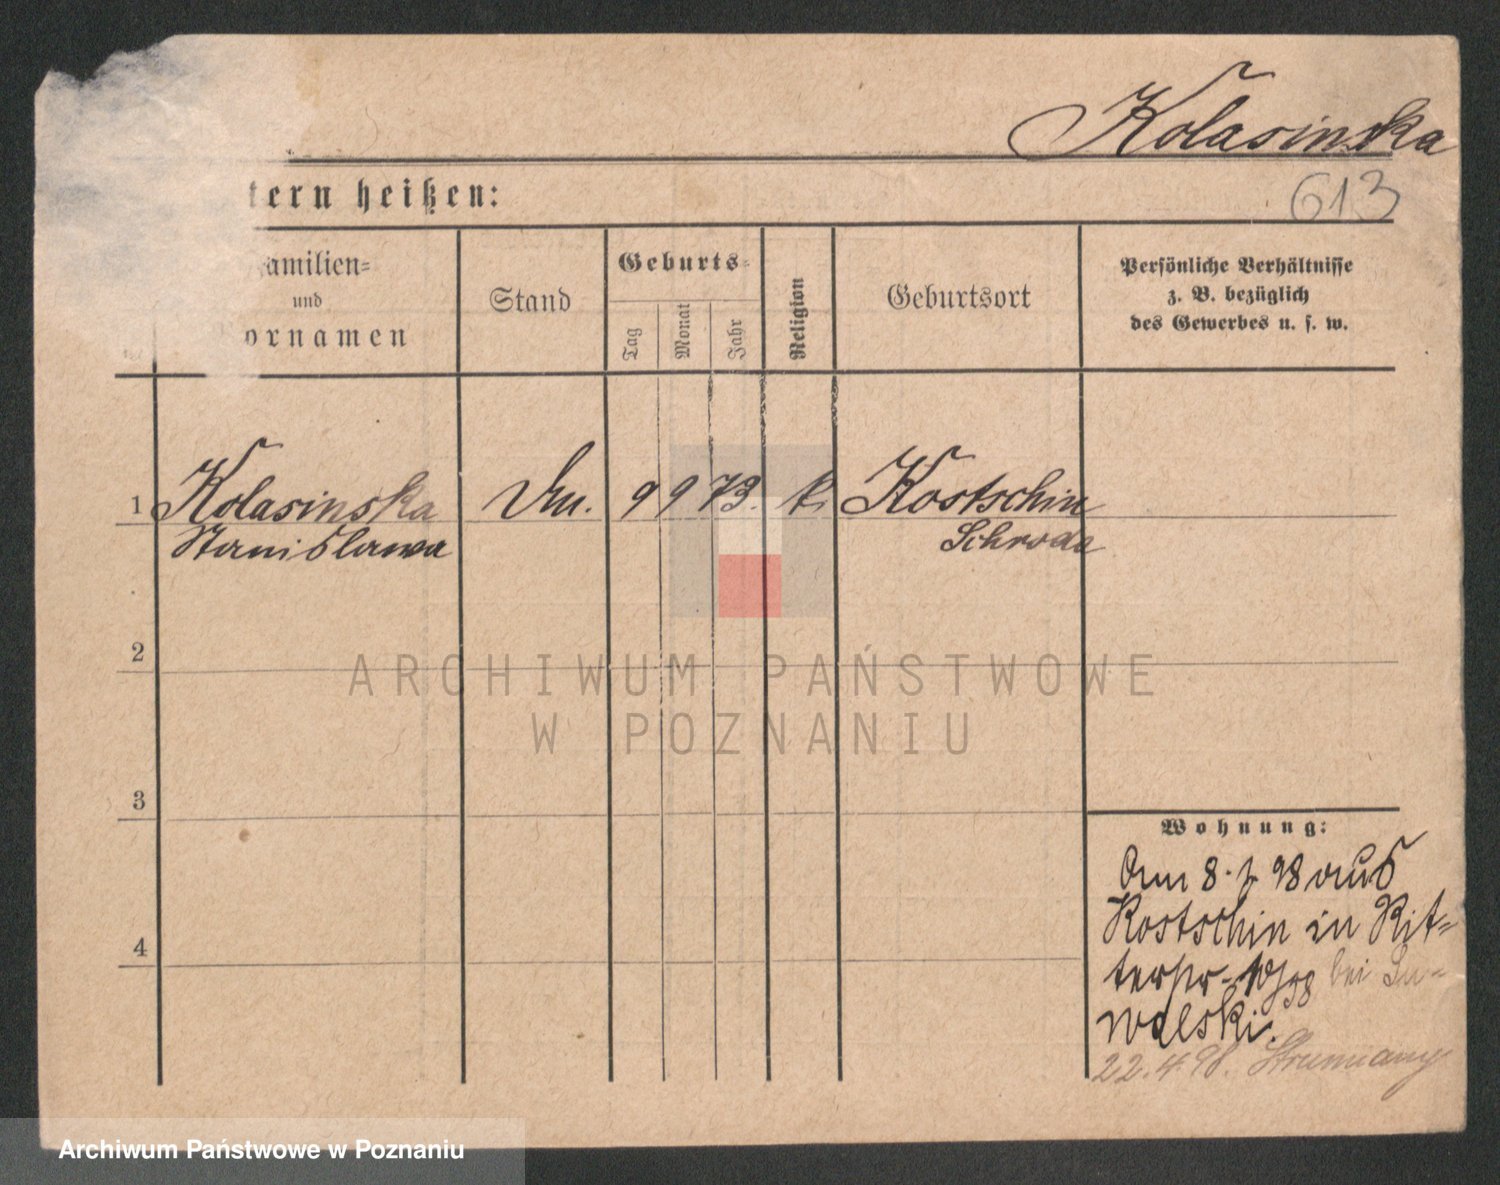 Kolasinska
613
tern heißen:
amilien=
und
ornamen
Stand
Geburts=
Tag
Monat
Jahr
Religion
Geburtsort
Persönliche Verhältnisse
z. B. bezüglich
des Gewerbes u. s. w.
1 Kolasinska 9 9 73. k. Kostschin
Stanislawa Schroda
2
3
4
Wohnung:
8. 98 aus
Kostschin in Rit-
terpr- bei Su-
walski.
22.4.98. Strumiany
ARCHIWUM PAŃSTWOWE
W POZNANIU
Archiwum Państwowe w Poznaniu